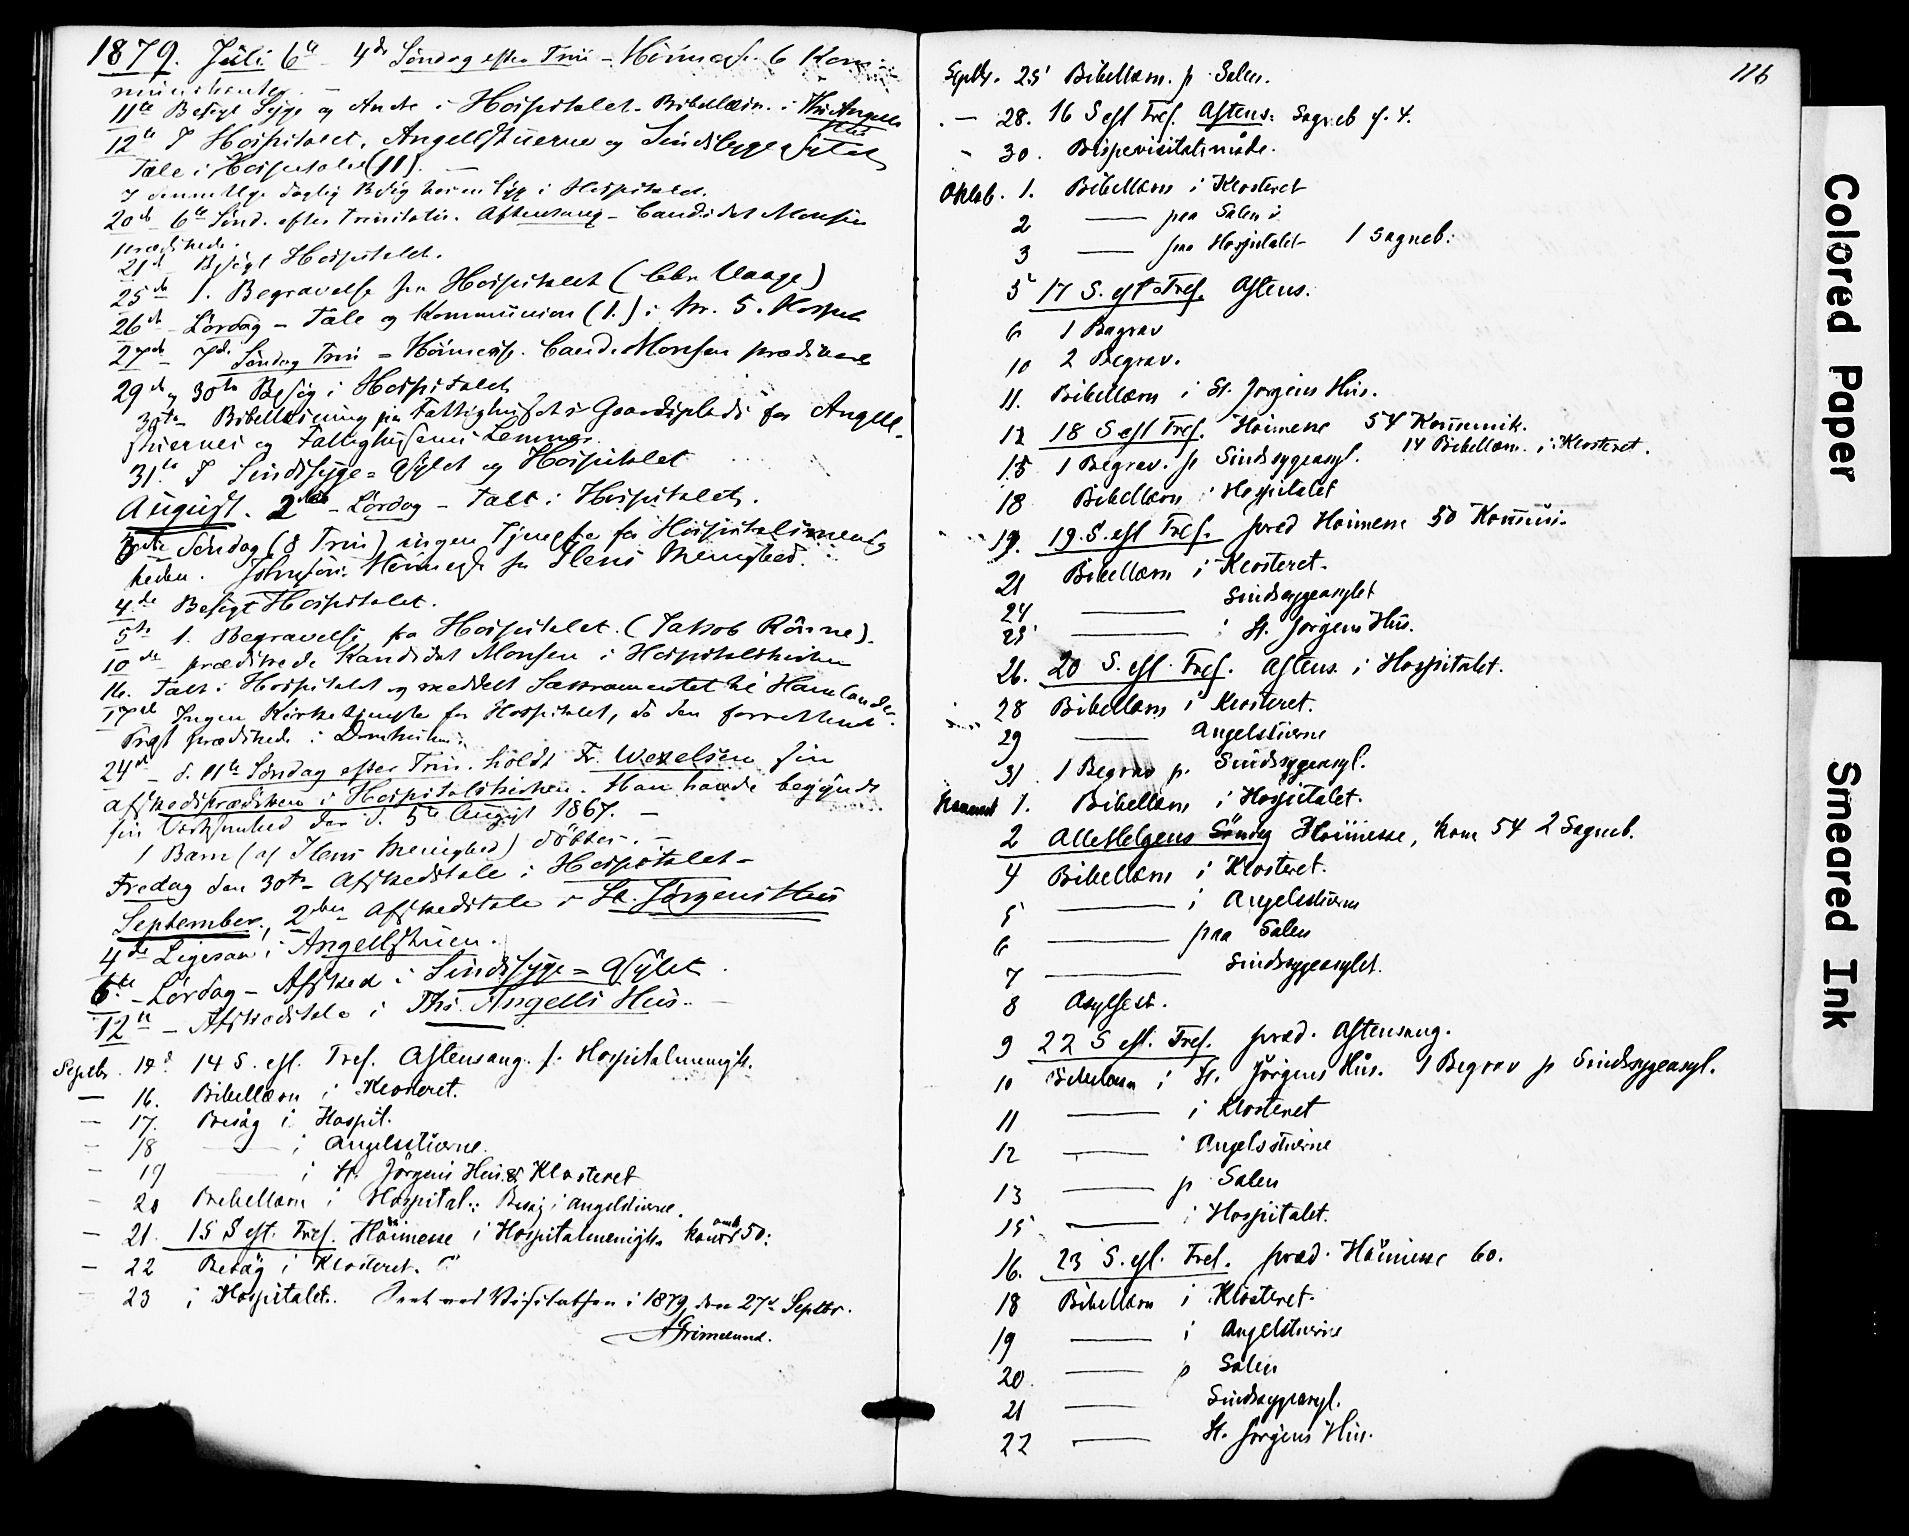 1879. Juli 6te 4de Søndag efter Trin – Høimesse 6 Kom-
munikanter. –
11te Besøgt Syge og Andre i Hospitalet. Bibellæsn. i Ths Angells
Hus
12te I Hospitalet, Angellstuerne og Sindssyge Asylet
Tale i Hospitalet (11). –
20de 6te Sønd. efter Trinitatis. Aftensang – Candidat Monsen
prædikede.
21de Besøgt Hospitalet.
25de 1. Begravelse fra Hospitalet (Chr. Vaage)
26de Lørdag – Tale og Kommunion (1.) i Nr. 5. Hospit.
27de 7de Søndag Trin = Høimesse. Cand. Monsen prædikede
29de og 30te Besøg i Hospitalet
30te Bibellæsning paa Fattighusets Gaardsplads for Angell-
stuernes og Fattighusenes Lemmer.
31te I Sindssyge=Asylet og Hospitalet
August. 2den – Lørdag – Tale i Hospitalet.
3die Søndag (8 Trin) ingen Tjeneste for Hospitalsmenig-
heden. Høimesse for Ilens Menighed.
4de Besøgt Hospitalet.
5te 1. Begravelse fra Hospitalet. (Jakob Rønne).
10de prædikede Kandidat Monsen i Hospitalskirken
16. Tale i Hospitalet og meddelt Sakramentet til
17de Ingen Kirketjeneste for Hospitalet, da den forrettende
Præst prædikede i Domkirken.
24de – d. 11te Søndag efter Trin. holdt Fr. Wexelsen sin
afskedsprædiken i Hospitalskirken. Han havde begyndt
sin Virksomhed der d. 5te August 1867. –
1 Barn (af Ilens Menighed) døbtes. –
Fredag den 30te Afskedstale i Hospitalet –
September, 2den Afskedstale i St. Jørgens Hus
4de Ligesaa i Angellstuen.
6te – Lørdag – Afsked i Sindssyge=Asylet
12te – Afskedstale i Ths. Angells Hus. –
Septbr. 14d 14 S. eft. Tref. Aftensang f. Hospitalmenigh.
— 16. Bibellæsn i Klosteret.
— 17. Besøg i Hospit.
— 18 —— i Angelsstuerne.
— 19 —— i St. Jörgens Hus & Klosteret
— 20 Bibellæsn i Hospital.: Besög i Angelstuerne.
— 21. 15 S eft. Tref. Höimesse i Hospitalmenigh. 50:
— 22 Besög i Klosteret.
23 i Hospitalet. Seet ved Visitatsen i 1879, den 27de Septbr.
AGrimelund.
116
Septbr. 25 Bibellæsn. p Salen.
— 28. 16 S eft Tref. Aftens: Sogneb f. 4.
- 30. Bispevisitatsmøde.
Oktob. 1. Bibellæsn i Klosteret
2 —— paa Salen
3 —— paa Hospitalet 1 Sogneb:
5 17 S. eft Tref. Aftens.
6 1 Begrav
10 2 Begrav.
11. Bibellæsn i St. Jørgens Hus.
12 18 S eft Tref. Høimesse 54 Kommunik.
15 1 Begrav. p Sindssygeasyl. 14 Bibellæsn. i Klosteret.
18 Bibellæsn i Hospitalet
19. 19. S. eft Tref. præd Høimesse 50 Kommuni.
21 Bibellæsn i Klosteret.
24 —— Sindssygeasylet
25 —— i St. Jørgens Hus.
26. 20 S. eft. Tref. Aftens. i Hospitalet.
28 Bibellæsn i Klosteret.
29 —— Angelstuerne
31 1 Begrav p. Sindssygeasyl.
Novemb 1. Bibellæsn i Hospitalet.
2 AlleHelgens Søndag Höimesse, kom 54 2 Sogneb.
4 Bibellæsn i Klosteret.
5 —— i Angelsstuerne
6 —— paa Salen
7 —— Sindssygeasylet.
8 Asylfest.
9 22 S eft. Tref. præd. Aftensang.
10 Bibellæsn i St. Jörgens Hus. 1 Begrav p Sindssygeasyl.
11 —— i Klosteret
12 —— i Angelsstuerne
13 —— p Salen
15 —— i Hospitalet.
16. 23 S. eft. Tref. præd. Höimesse 60.
18 Bibellæsn i Klosteret.
19 —— i Angelstuerne
20 —— p Salen
21 —— Sindssygeasyl.
22 —— St. Jörgens Hus.
Colored Paper
Smeared Ink